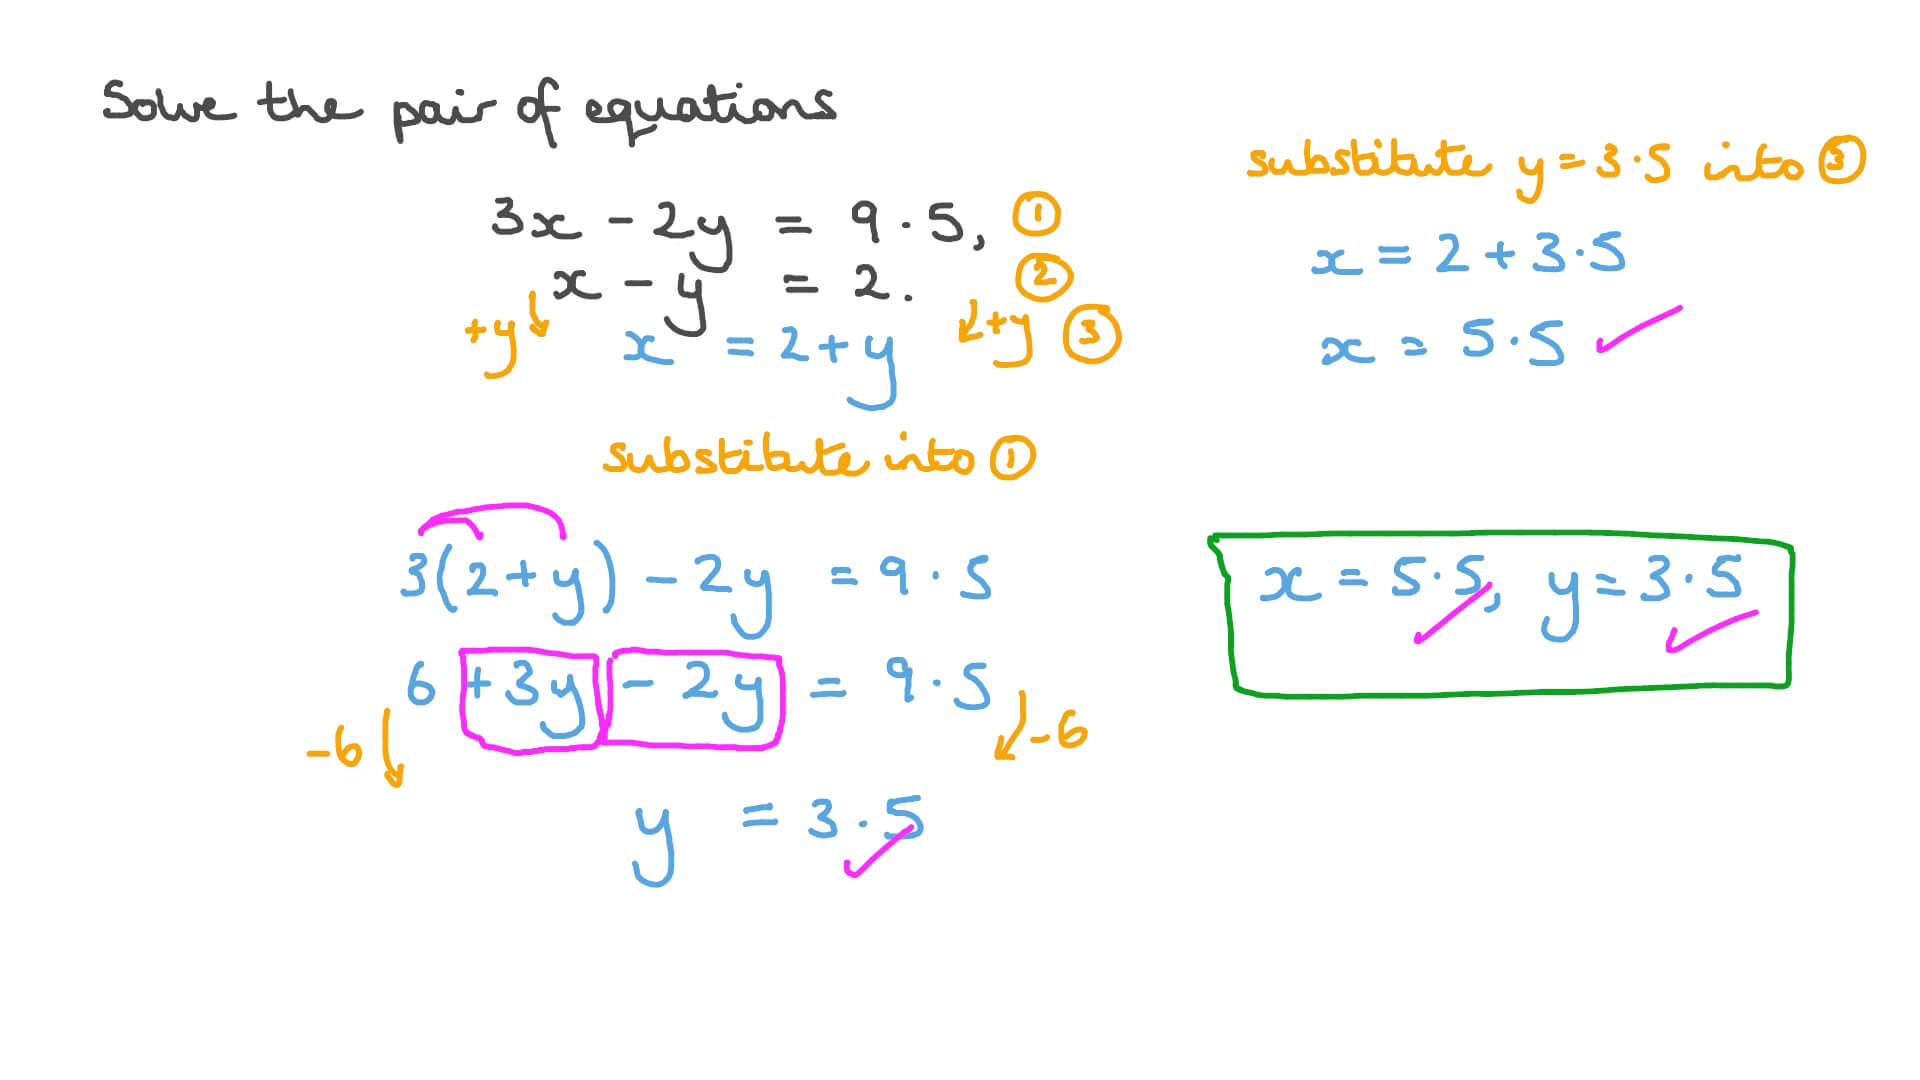 Solve the pair of equations
3x - 2y = 9.5, ①
x - y = 2. ②
+y x = 2 + y +y ③
substitute into ①
3(2 + y) - 2y = 9.5
6 + 3y - 2y = 9.5
-6 -6
y = 3.5 ✓
substitute y = 3.5 into ③
x = 2 + 3.5
x = 5.5 ✓
x = 5.5, y = 3.5